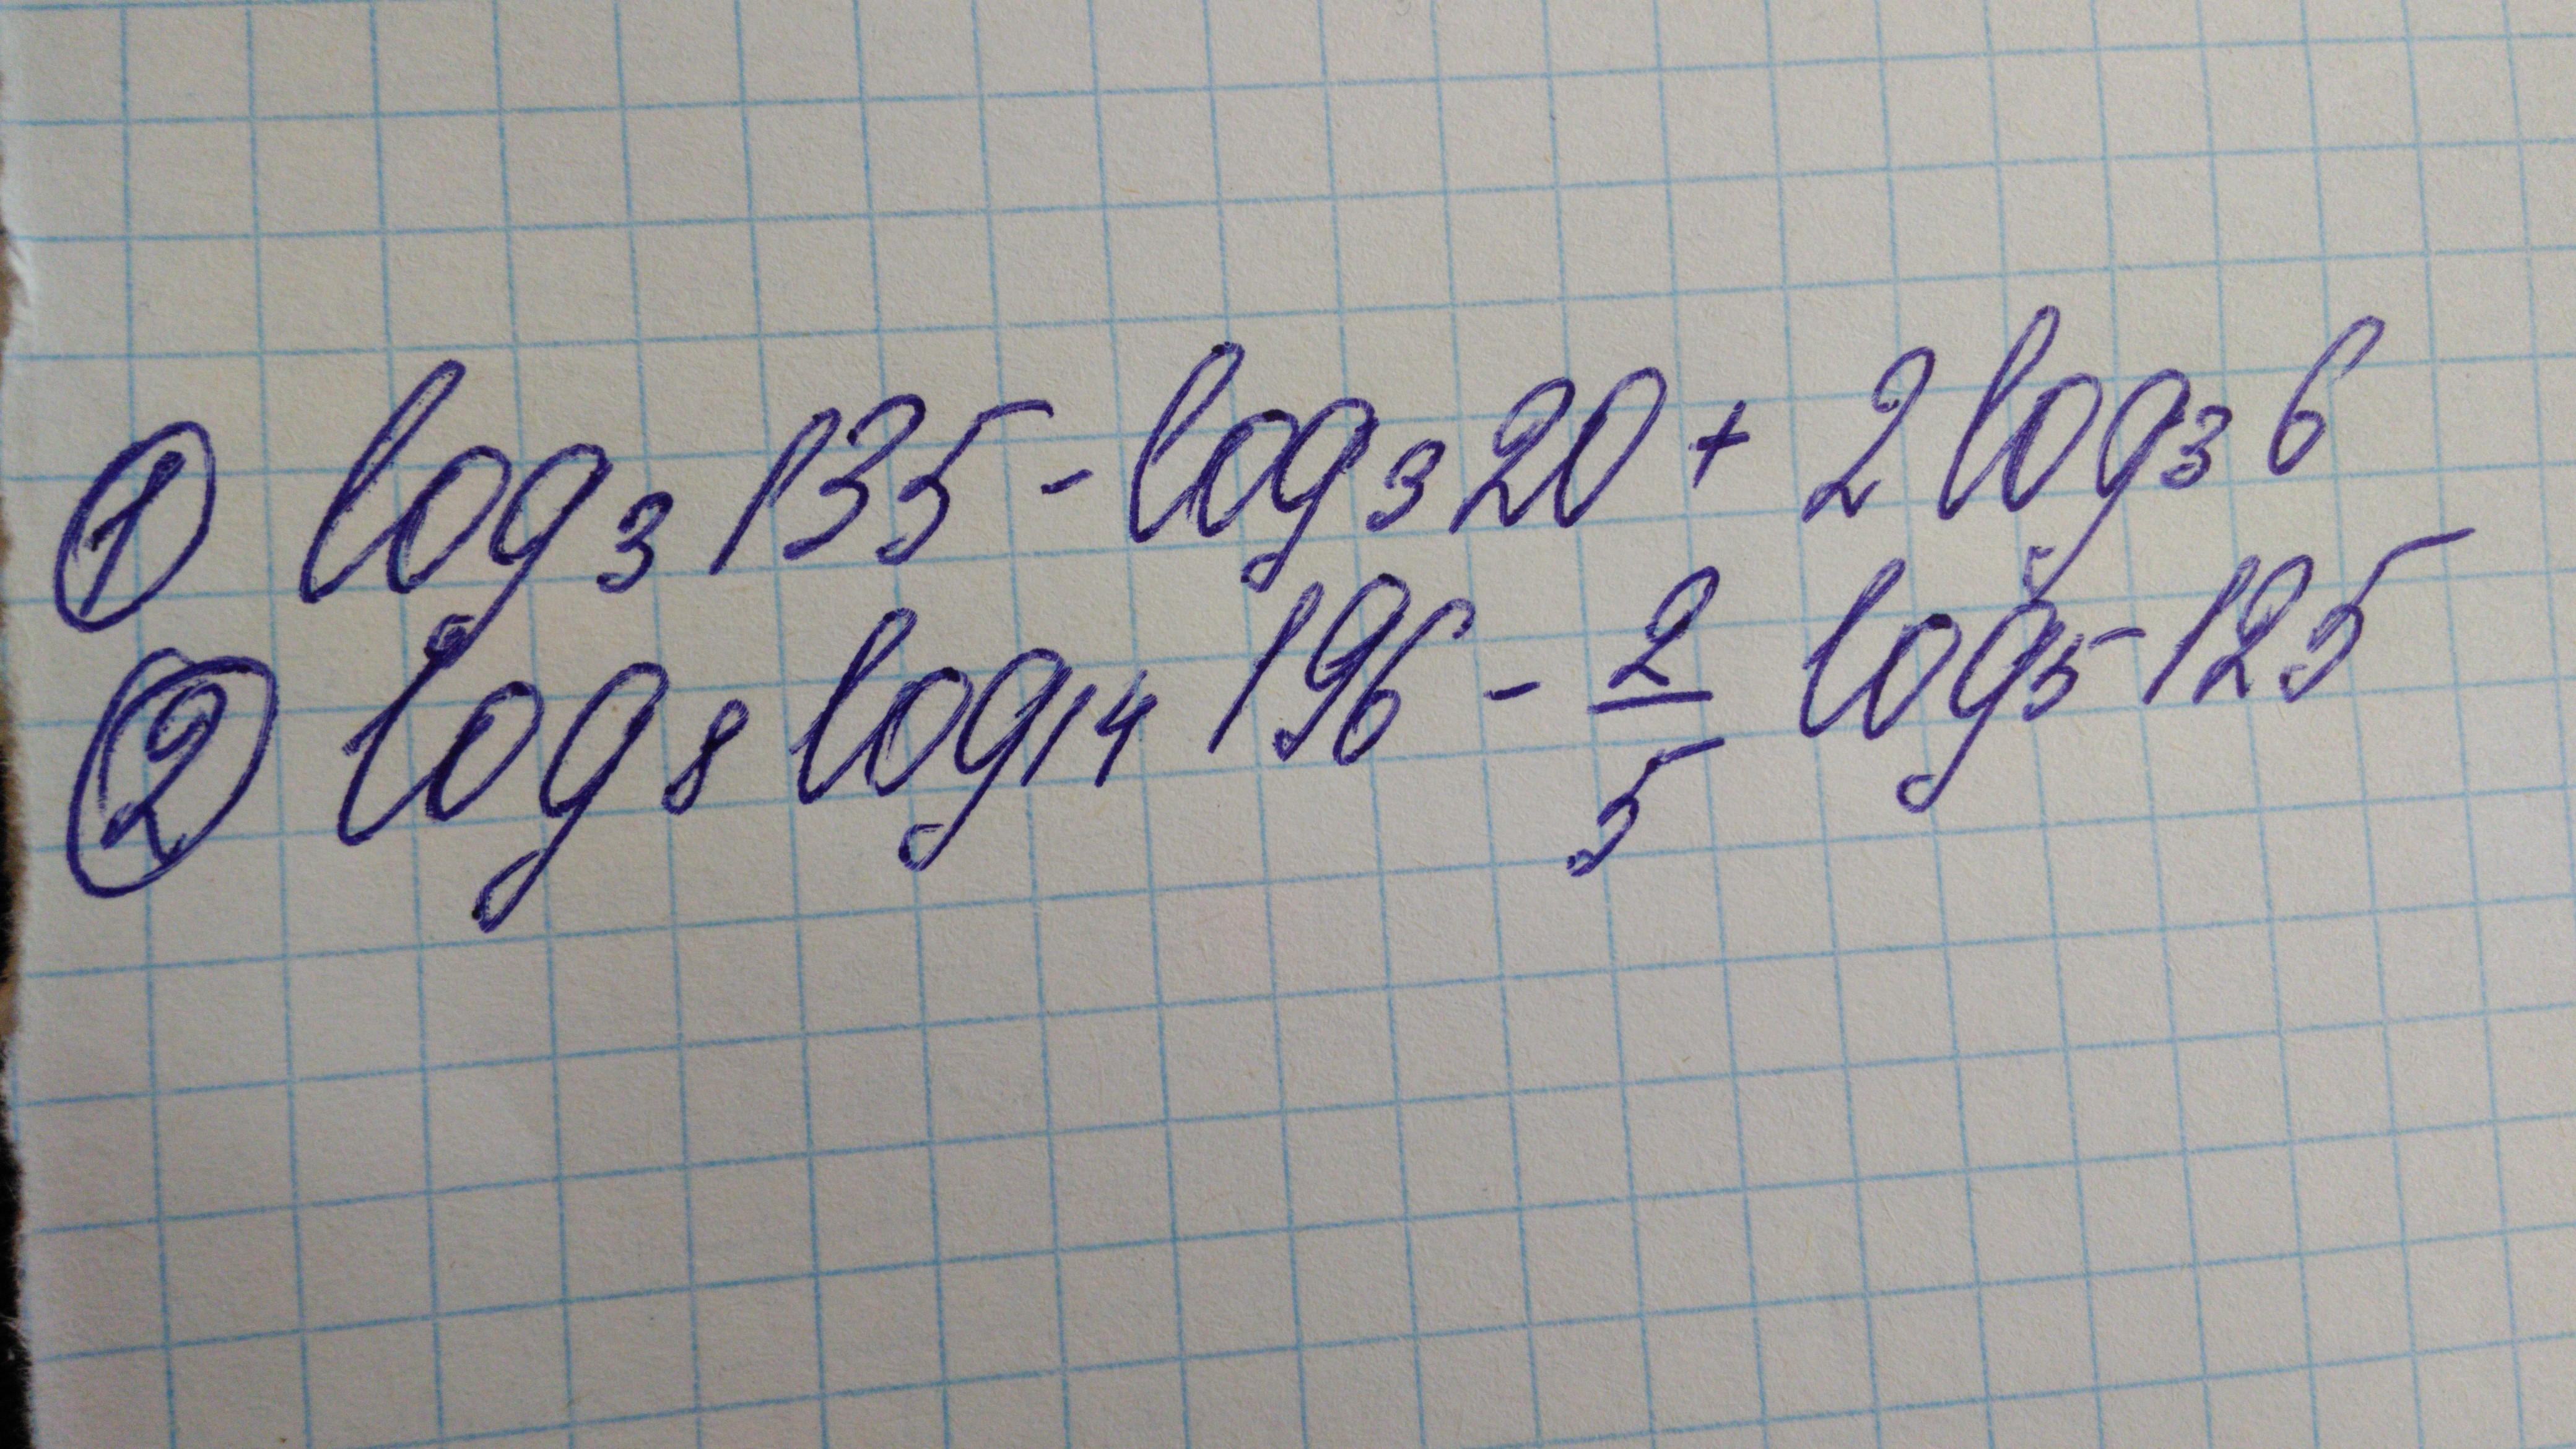 ① log₃ 135 - log₃ 20 + 2 log₃ 6
② log₈ log₁₄ 196 - 2/5 log₅ 125